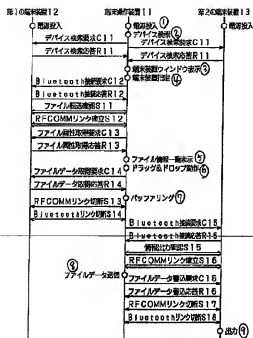 第1の端末装置12 端末操作装置11 第2の端末装置13
電源投入 電源投入① 電源投入
デバイス検索②
デバイス検索要求C11 デバイス検索要求C11
デバイス検索応答R11 デバイス検索応答R11
端末装置ウィンドウ表示③
端末装置指定④
Bluetooth接続要求C12
Bluetooth接続応答R12
ファイル転送確認S11
RFCOMMリンク確立S12
ファイル属性取得要求C13
ファイル属性取得応答R13
ファイル情報一覧表示⑤
ドラッグ&ドロップ動作⑥
ファイルデータ取得要求C14
ファイルデータ取得応答R14
バッファリング⑦
RFCOMMリンク切断S13
Bluetoothリンク切断S14
Bluetooth接続要求C15
Bluetooth接続応答R15
情報出力確認S15
RFCOMMリンク確立S16
⑧
ファイルデータ送信
ファイルデータ書込要求C16
ファイルデータ書込応答R16
RFCOMMリンク切断S17
Bluetoothリンク切断S18
出力⑨